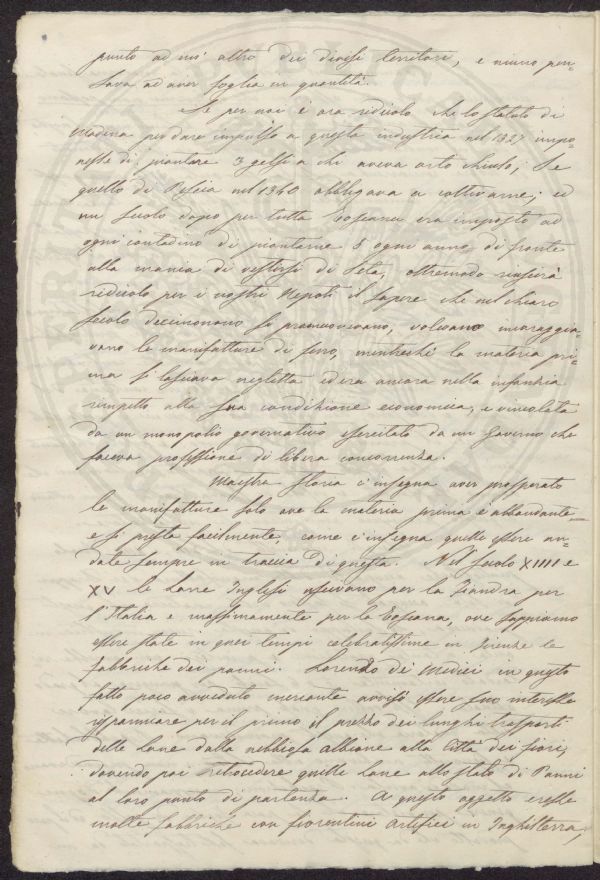 punto ad un' altro dei diversi territori, e niuno pen-
sava ad aver foglia in quantità.
Se per noi è ora ridicolo che lo statuto di
Modena per dare impulso a questa industria nel 1327 impo-
nesse di piantare 3 gelsi a chi aveva orto chiuso; Se
quello di Pescia nel 1340 obbligava a coltivarne; ed
un secolo dopo per tutta Toscana era imposto ad
ogni contadino di piantarne 5 ogni anno di fronte
alla mania di vestirsi di Seta, oltremodo riuscirà
ridicolo per i nostri Nepoti il sapere che nel chiaro
secolo decimonono si promuovevano, volevano incoraggia-
vano le manifatture di                , mentreché la materia pri-
ma si lasciava negletta ed era ancora nella infanzia
rimpetto alla sua condizione economica, e vincolata
da un monopolio governativo esercitato da un Governo che
faceva professione di libera concorrenza.
Maestra Storia c'insegna aver prosperato
le manifatture solo ove la materia prima è abbondante
e si presta facilmente, come c'insegna quelle essere an-
date sempre in traccia di questa. Nel Secolo XIIII e
XV le Lane Inglesi uscivano per la Fiandra per
l'Italia e massimamente per la Toscana, ove sappiamo
essere state in quei tempi celebratissime in Firenze le
fabbriche dei panni. Lorenzo dei Medici in questo
fatto poco avveduto mercante avvisò essere suo interesse
risparmiare per il primo il prezzo dei lunghi trasporti
delle Lane dalla nebbiosa Albione alla Città dei fiori,
dovendo poi retrocedere quelle Lane allo stato di Panni
al loro punto di partenza. A questo oggetto eresse
molte fabbriche con fiorentini Artefici in Inghilterra,